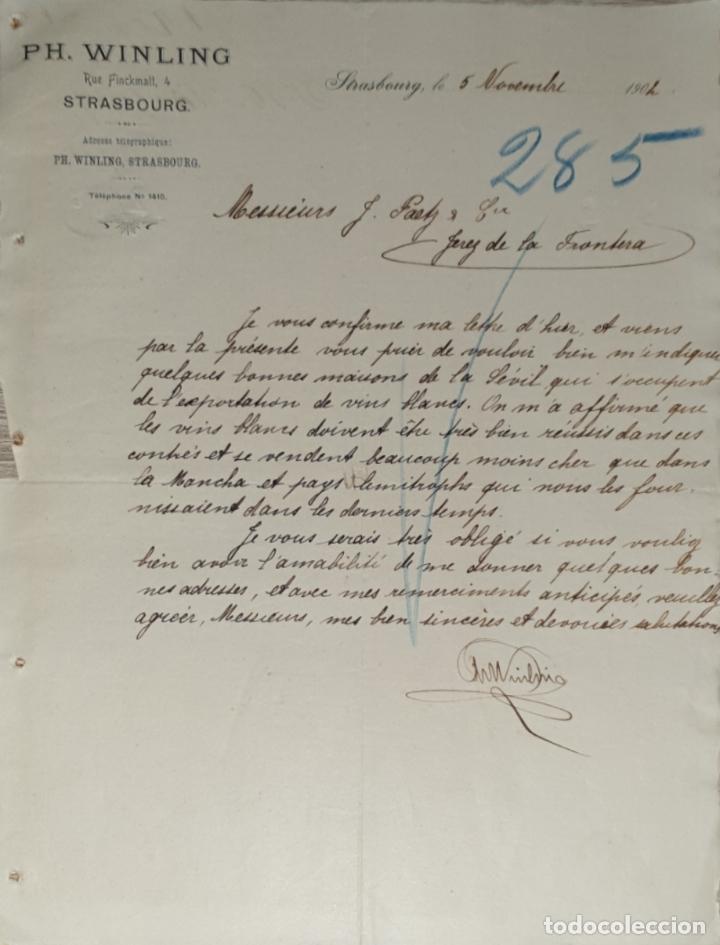 PH. WINLING
Rue Finckmatt, 4
STRASBOURG.
Adresse télégraphique:
PH. WINLING, STRASBOURG.
Téléphone No 1410.
Strasbourg, le 5 Novembre 1902
285
Messieurs J. & Cie
Jerez de la Frontera
Je vous confirme ma lettre d'hier, et viens
par la présente vous prier de vouloir bien m'indiquer
quelques bonnes maisons de la Sévil qui s'occupent
de l'exportation de vins blancs. On m'a affirmé que
les vins blancs doivent être très bien réussis dans ces
contrés et se vendent beaucoup moins cher que dans
la Mancha et pays lemitrophs qui nous les four-
nissaient dans les derniers temps.
Je vous serais très obligé si vous vouliez
bien avoir l'amabilité de me donner quelques bon-
nes adresses, et avec mes remerciments anticipés, veuillez
agréer, Messieurs, mes bien sincères et devouées salutations
Winling
todocoleccion
todocoleccion.net